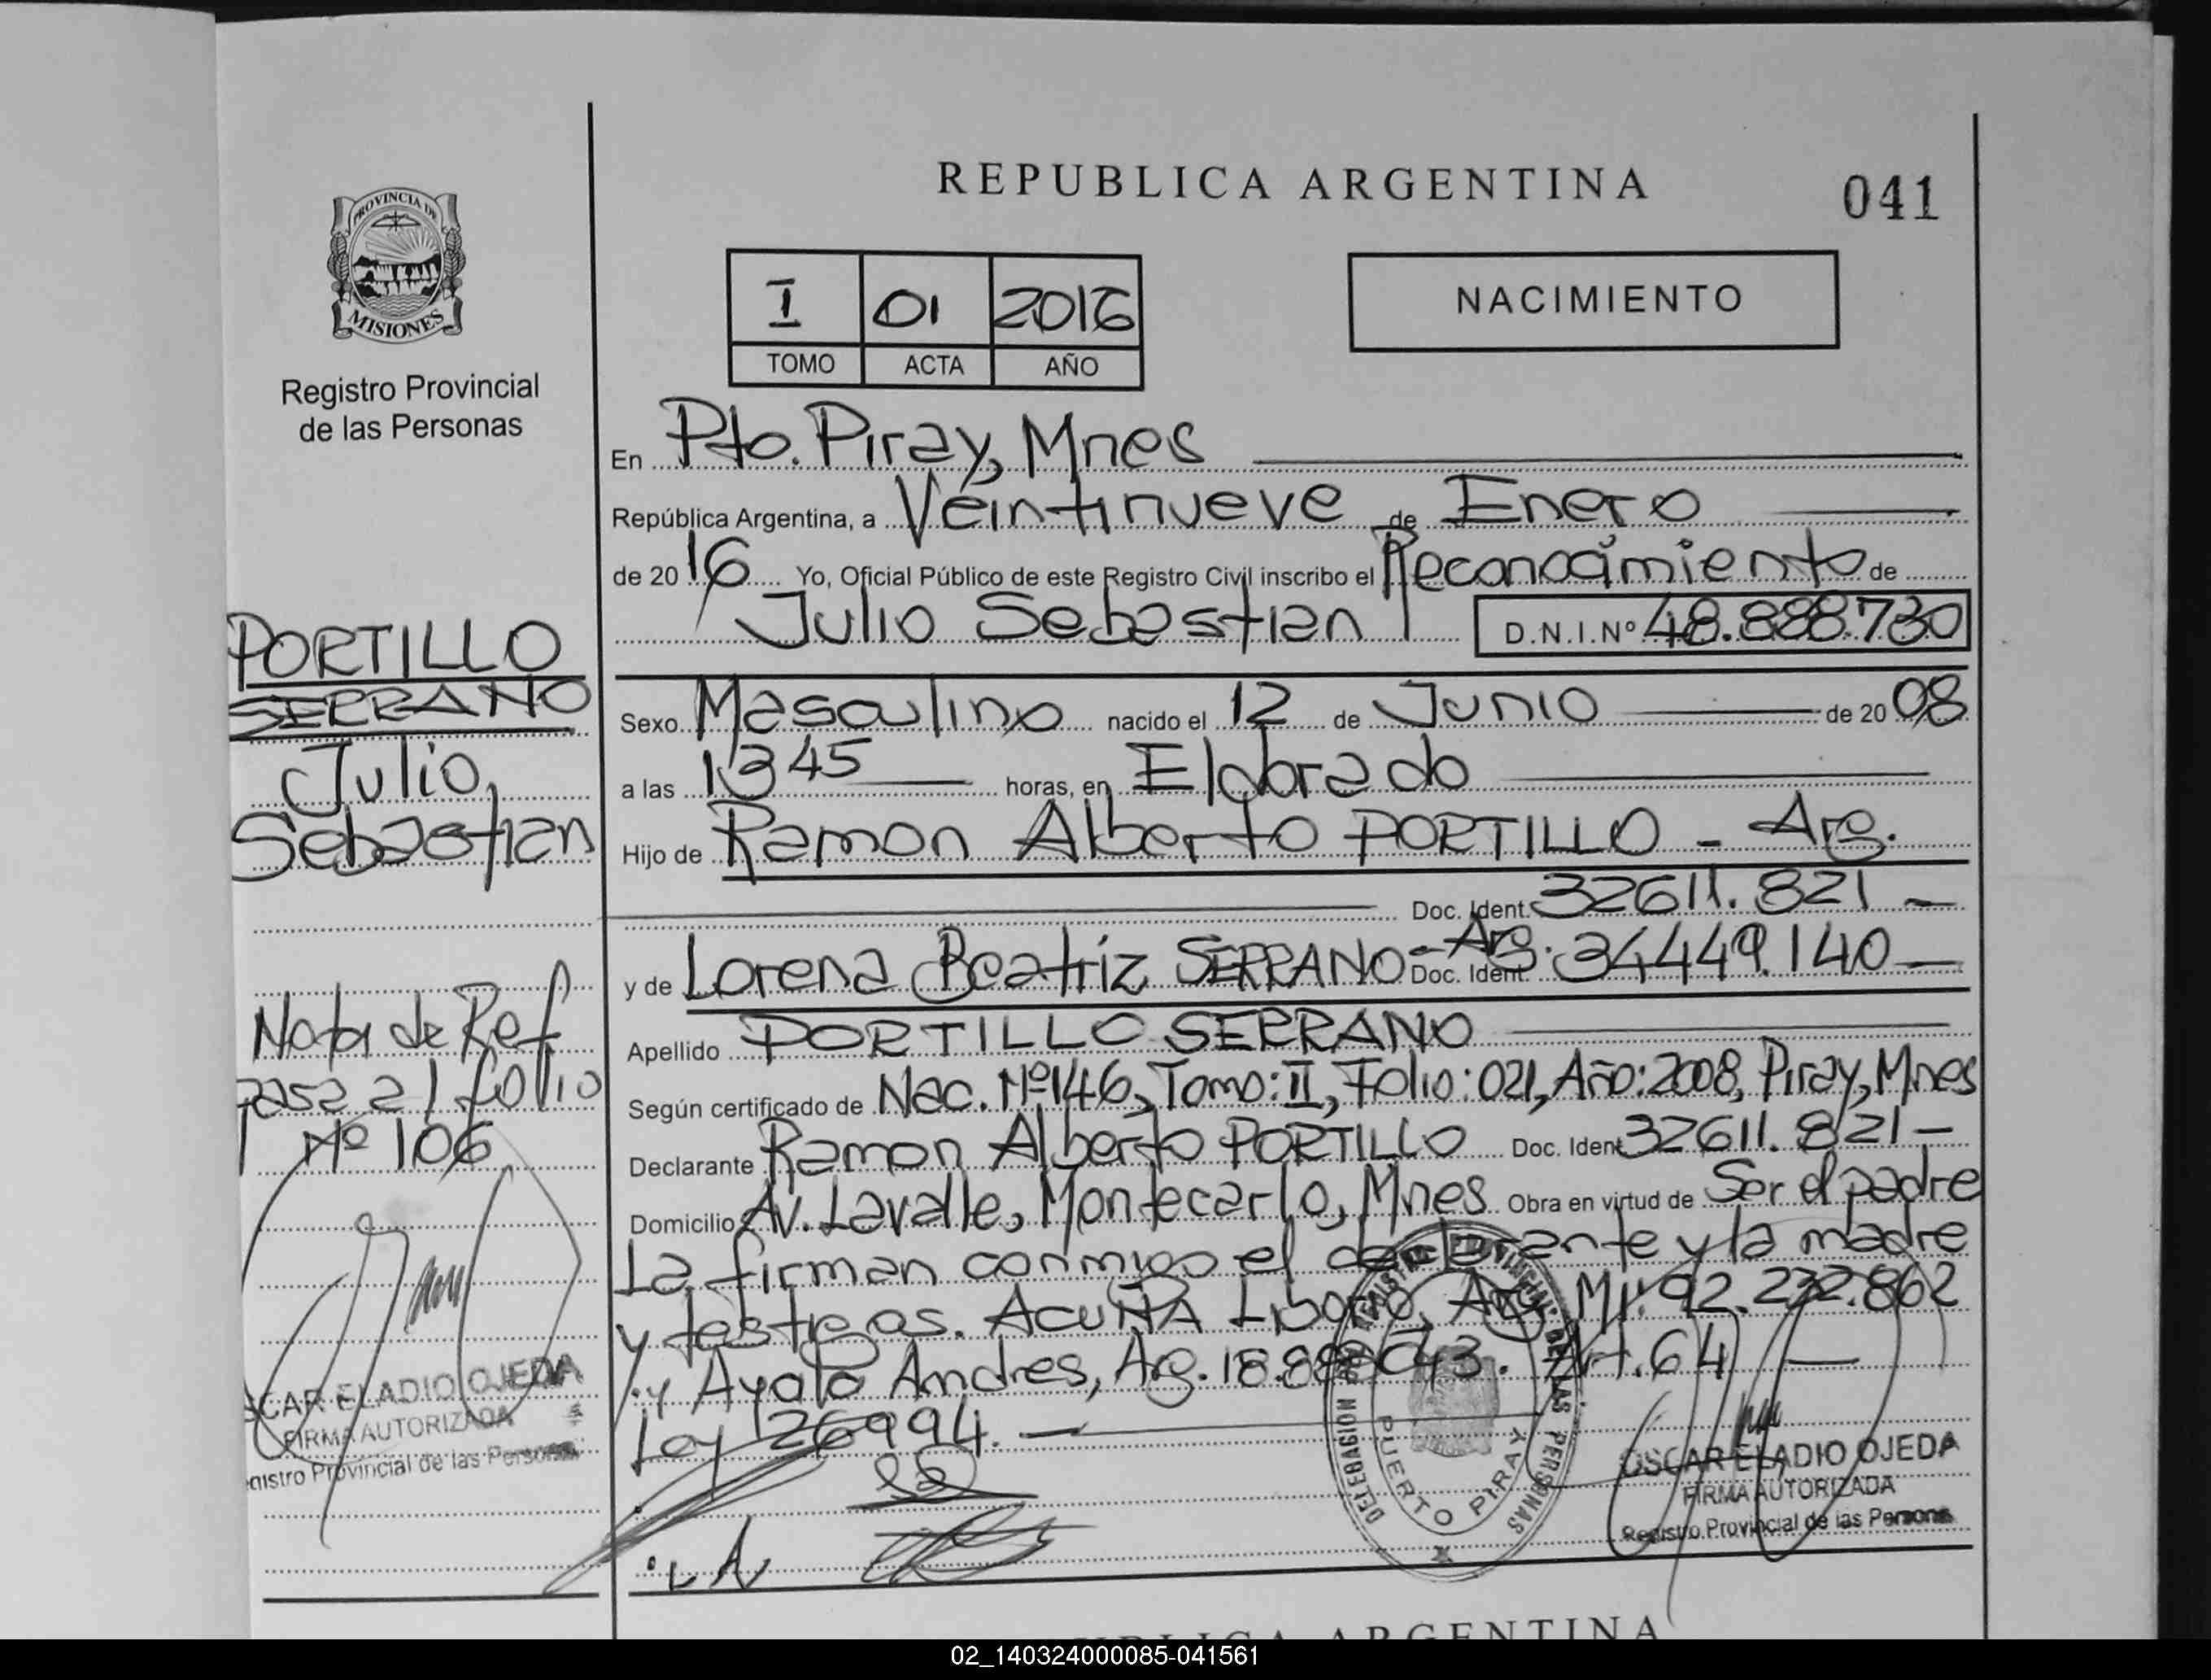 REPUBLICA ARGENTINA
041
PROVINCIA DE
MISIONES
Registro Provincial
de las Personas
I 01 2016
TOMO ACTA AÑO
NACIMIENTO
En Pto. Piray, Mnes
República Argentina, a Veintinueve de Enero
de 2016 Yo, Oficial Público de este Registro Civil inscribo el Reconocimiento de
Julio Sebastian D.N.I.Nº 48.888.730
Sexo Masculino nacido el 12 de Junio de 2008
a las 1345 horas, en Eldorado
Hijo de Ramon Alberto PORTILLO - Arg.
Doc. Ident. 32611.821 -
y de Lorena Beatriz SERRANO - Arg. Doc. Ident. 34449.140 -
Apellido PORTILLO SERRANO
Según certificado de Nac. Nº146, Tomo: II, Folio: 021, Año: 2008, Piray, Mnes
Declarante Ramon Alberto PORTILLO Doc. Ident 32611.821 -
Domicilio Av. Lavalle, Montecarlo, Mnes Obra en virtud de Ser el padre
La firman conmigo el declarante y la madre
y testigos. ACUÑA Liborio, Arg. MI: 92.232.862
y Ayala Andres, Arg. 18. Art. 64
Ley 26994. -
PORTILLO
SERRANO
Julio
Sebastian
Nota de Ref
pasa al folio
Nº 106
OSCAR ELADIO OJEDA
FIRMA AUTORIZADA
Registro Provincial de las Personas
REGISTRO PROVINCIAL DE LAS PERSONAS
DELEGACION
PUERTO PIRAY
L A
OSCAR ELADIO OJEDA
FIRMA AUTORIZADA
Registro Provincial de las Personas
REPUBLICA ARGENTINA
02_140324000085-041561